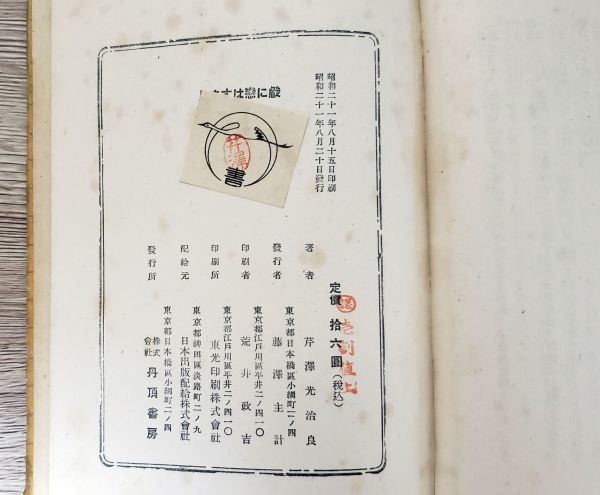 戲に戀はすまじ
昭和二十一年八月十五日印刷
昭和二十一年八月二十日發行
芹澤
書
定價 拾六圓（税込）
壱割値上
著者 芹澤光治良
東京都日本橋區小網町二ノ四
發行者 藤澤圭計
東京都江戸川區平井二ノ四一〇
印刷者 荒井政吉
東京都江戸川區平井二ノ四一〇
印刷所 東光印刷株式會社
東京都神田區淡路町二ノ九
配給元 日本出版配給株式會社
東京都日本橋區小網町二ノ四
發行所 株式會社 丹頂書房